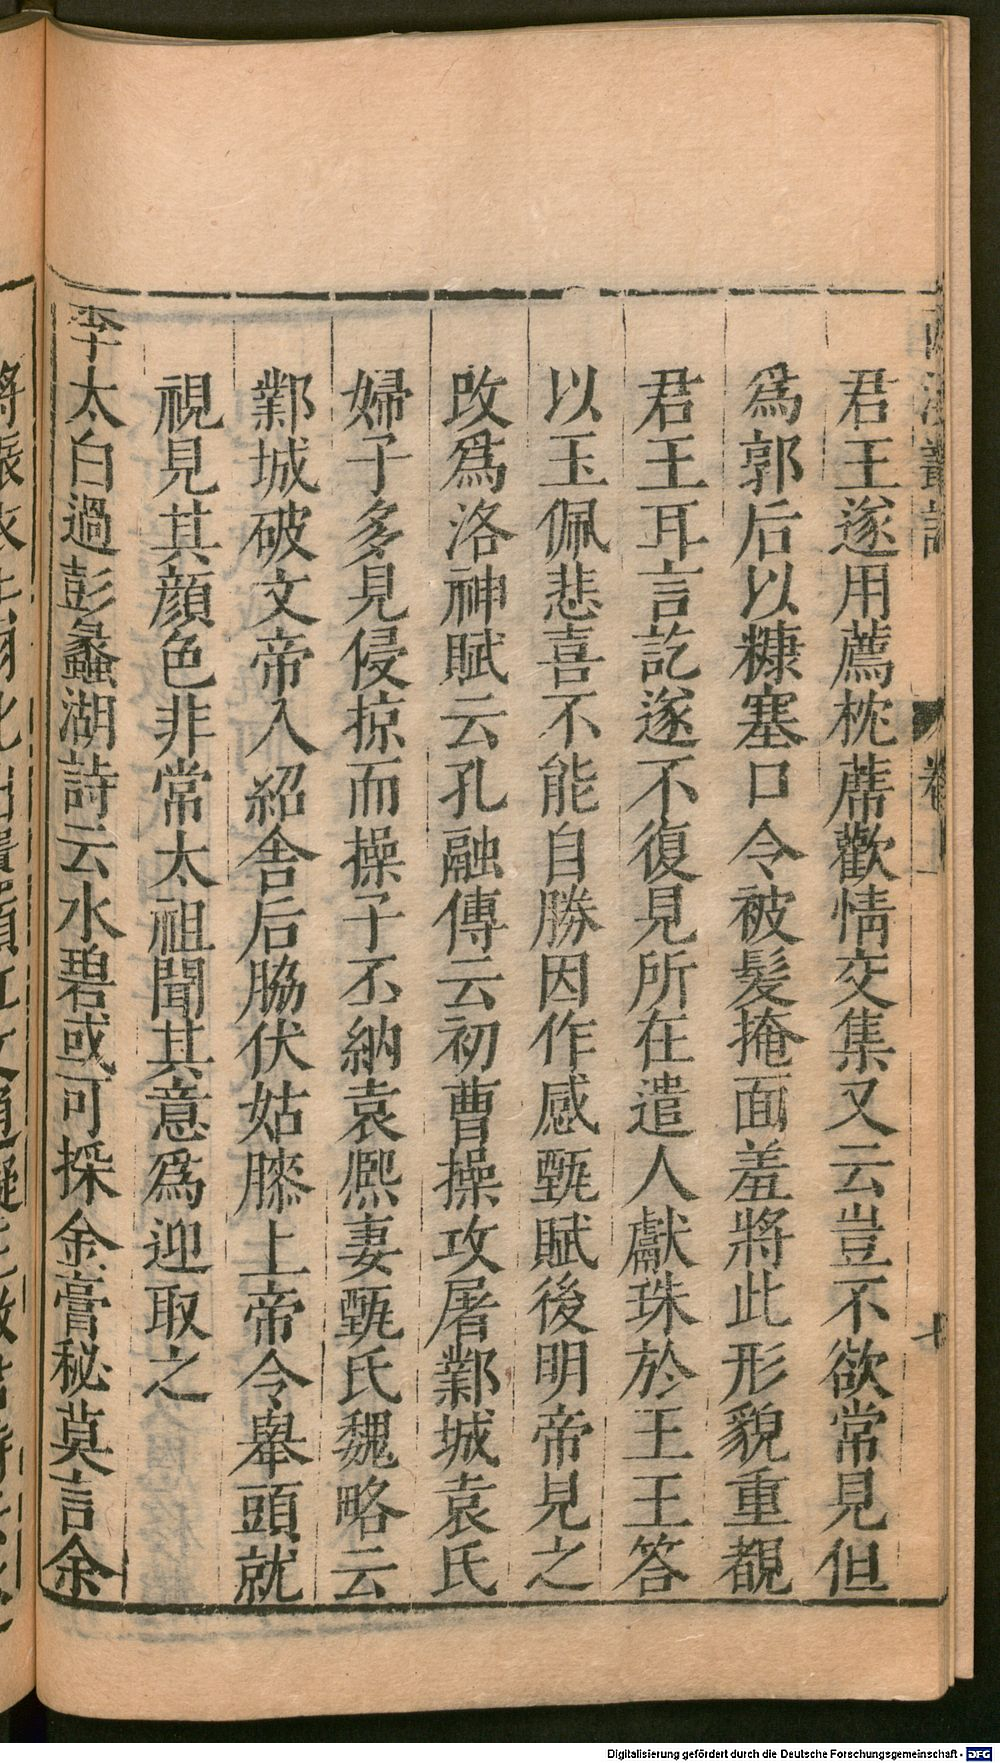 君王遂用薦枕蓆歡情交集又云豈不欲常見但
爲郭后以糠塞口令被髮掩面羞將此形貌重覩
君王耳言訖遂不復見所在遣人獻珠於王王答
以玉佩悲喜不能自勝因作感甄賦後明帝見之
改爲洛神賦云孔融傳云初曹操攻屠鄴城袁氏
婦子多見侵掠而操子丕納袁熙妻甄氏魏略云
鄴城破文帝入紹舍后脇伏姑膝上帝令舉頭就
視見其顏色非常太祖聞其意爲迎取之
李太白過彭蠡湖詩云水碧或可採金膏秘莫言余
Digitalisierung gefördert durch die Deutsche Forschungsgemeinschaft - DFG